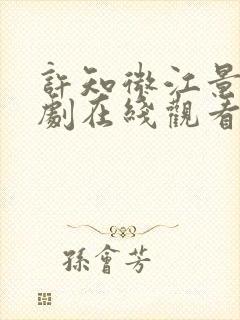 許知微江景
劇在綫觀看
孫會芳